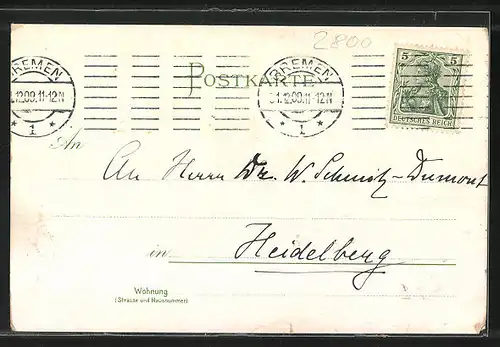 2800
BREMEN
.12.09.11-12N
* 1 *
POSTKARTE
BREMEN
31.12.09.11-12N
* 1 *
5 5
DEUTSCHES REICH
An
An Herrn Dr. W. Schmitz-Dumont
in Heidelberg
Wohnung
(Strasse und Hausnummer)